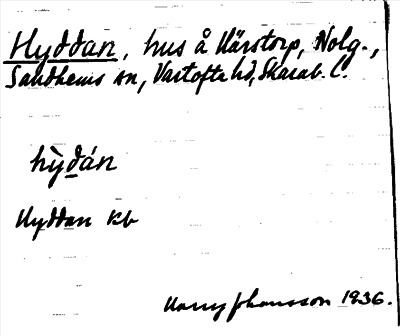 Hyddan, hus å Kärstorp, Nolg.,
Sandhems sn, Vartofta hd, Skarab. l.
hỳdán
Hyddan kb
Harry Johansson 1936.